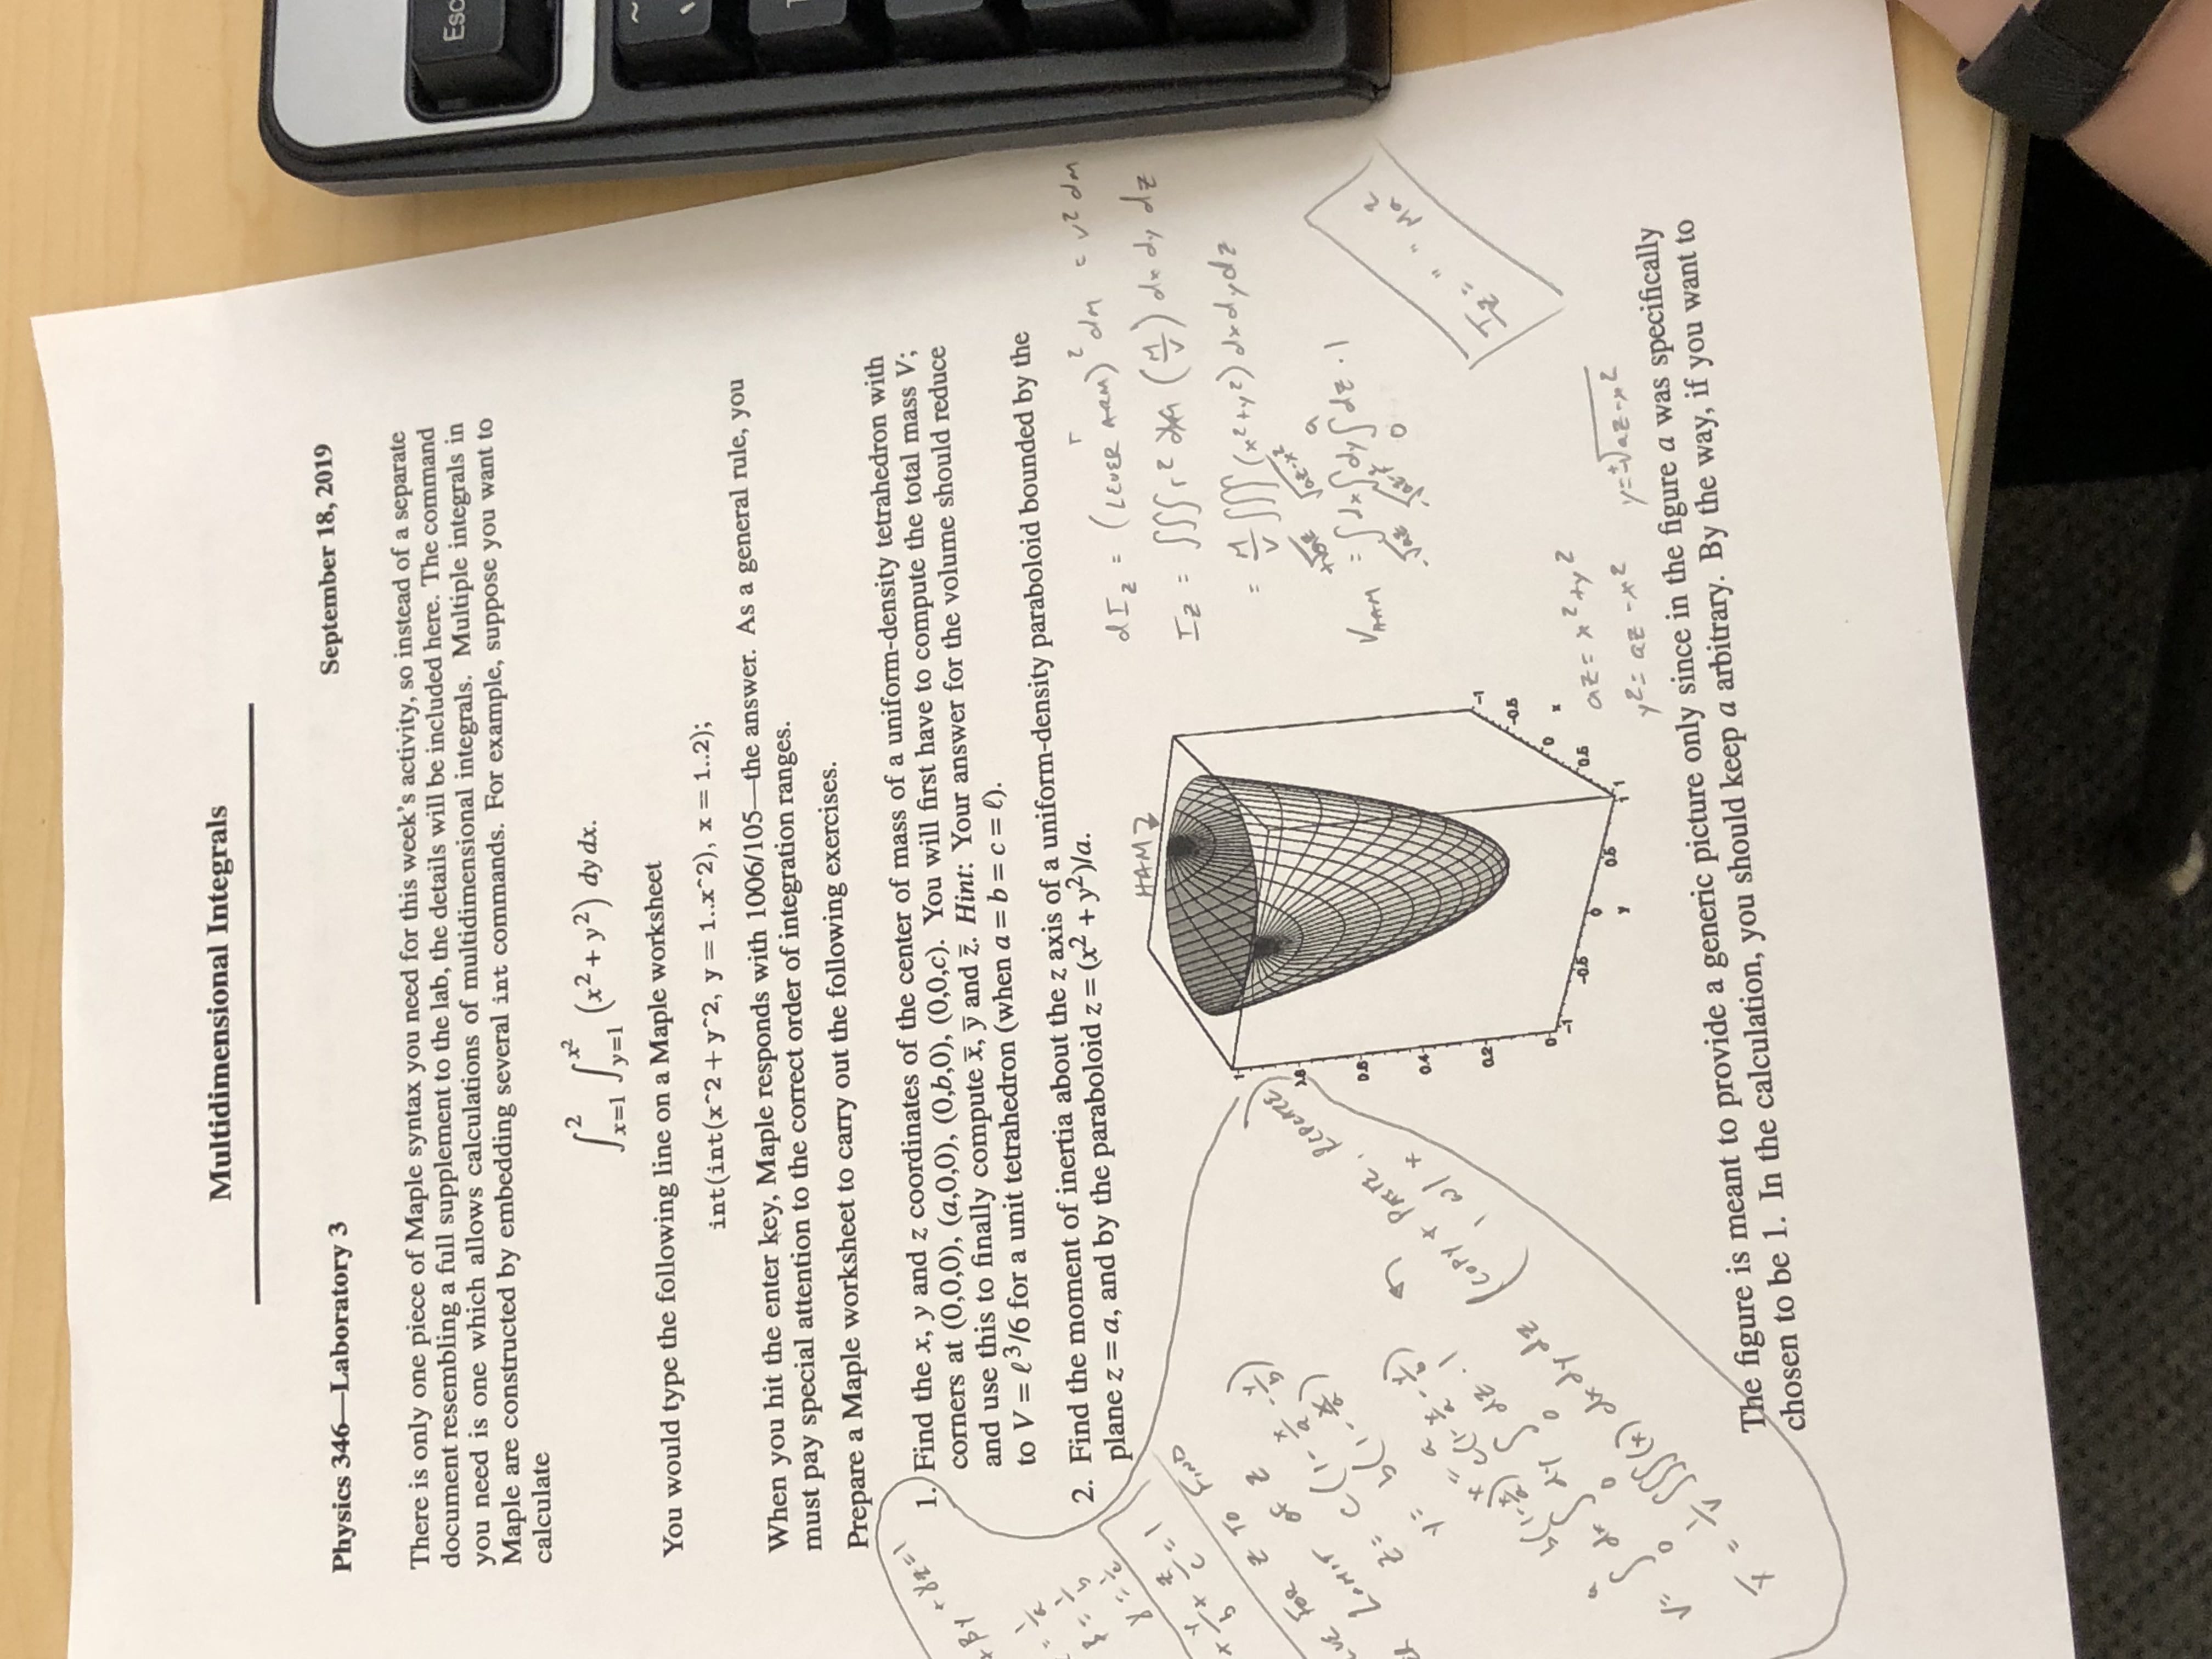 Esc
~
Multidimensional Integrals
Physics 346—Laboratory 3 September 18, 2019
There is only one piece of Maple syntax you need for this week's activity, so instead of a separate
document resembling a full supplement to the lab, the details will be included here. The command
you need is one which allows calculations of multidimensional integrals. Multiple integrals in
Maple are constructed by embedding several int commands. For example, suppose you want to
calculate
∫_{x=1}^{2} ∫_{y=1}^{x²} (x² + y²) dy dx.
You would type the following line on a Maple worksheet
int(int(x^2 + y^2, y = 1..x^2), x = 1..2);
When you hit the enter key, Maple responds with 1006/105—the answer. As a general rule, you
must pay special attention to the correct order of integration ranges.
Prepare a Maple worksheet to carry out the following exercises.
1. Find the x, y and z coordinates of the center of mass of a uniform-density tetrahedron with
corners at (0,0,0), (a,0,0), (0,b,0), (0,0,c). You will first have to compute the total mass V;
and use this to finally compute x̅, y̅ and z̅. Hint: Your answer for the volume should reduce
to V = ℓ³/6 for a unit tetrahedron (when a = b = c = ℓ).
2. Find the moment of inertia about the z axis of a uniform-density paraboloid bounded by the
plane z = a, and by the paraboloid z = (x² + y²)/a.
dI_z = (LEVER ARM)² dM = r² dM
r
I_z = ∫∫∫ r² (M/V) dx dy dz
= M/V ∫∫∫ (x² + y²) dx dy dz
V_HAM = ∫dx ∫dy ∫dz · 1
I_z = " " Ma²
HAM
1
0.8
0.6
0.4
0.2
0
-1
-0.5
0
0.5
1
y
-1
-0.5
0
0.5
1
x
az = x² + y²
y² = az - x² y = ±√az - x²
z = c(1 - x/a - y/b)
y = b(1 - x/a)
x = a
(COPY & PASTE, REPLACE
1 w/ +
The figure is meant to provide a generic picture only since in the figure a was specifically
chosen to be 1. In the calculation, you should keep a arbitrary. By the way, if you want to